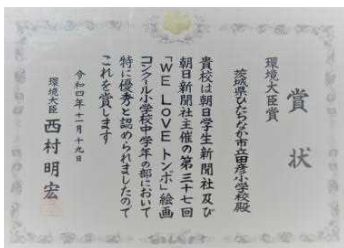 賞状
環境大臣賞
茨城県ひたちなか市立田彦小学校殿
貴校は朝日学生新聞社及び
朝日新聞社主催の第三十七回
「WE LOVE トンボ」絵画
コンクール小学校中学年の部において
特に優秀と認められましたので
これを賞します
令和四年十一月十九日
環境大臣 西村明宏